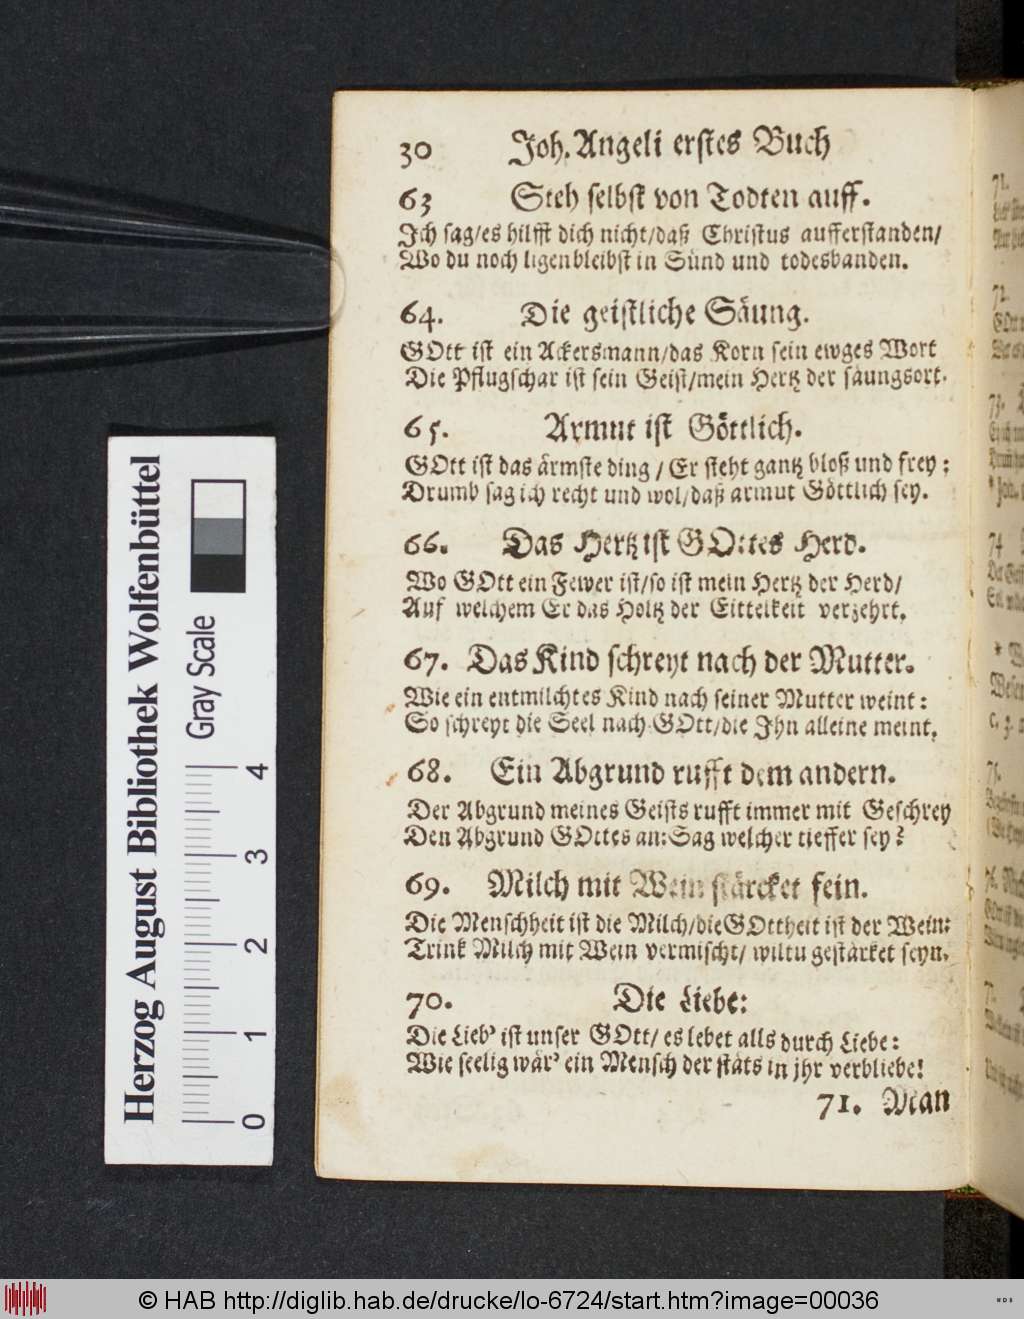 30 Joh. Angeli erstes Buch
63 Steh selbst von Todten auff.
Ich sag/es hilfft dich nicht/daß Christus aufferstanden/
Wo du noch ligen bleibst in Sünd und todesbanden.
64. Die geistliche Säung.
GOtt ist ein Ackersmann/das Korn sein ewges Wort
Die Pflugschar ist sein Geist/mein Hertz der säungsort.
65. Armut ist Göttlich.
GOtt ist das ärmste ding / Er steht gantz bloß und frey:
Drumb sag ich recht und wol/daß armut Göttlich sey.
66. Das Hertz ist GOttes Herd.
Wo GOtt ein Fewer ist/so ist mein Hertz der Herd/
Auf welchem Er das Holtz der Eittelkeit verzehrt.
67. Das Kind schreyt nach der Mutter.
Wie ein entmilchtes Kind nach seiner Mutter weint:
So schreyt die Seel nach GOtt/die Ihn alleine meint.
68. Ein Abgrund rufft dem andern.
Der Abgrund meines Geists rufft immer mit Geschrey
Den Abgrund GOttes an: Sag welcher tieffer sey?
69. Milch mit Wein stärcket fein.
Die Menschheit ist die Milch/die GOttheit ist der Wein:
Trink Milch mit Wein vermischt/ wiltu gestärket seyn.
70. Die Liebe:
Die Lieb' ist unser GOtt/ es lebet alls durch Liebe:
Wie seelig wär' ein Mensch der stäts in jhr verbliebe!
71. Man
Herzog August Bibliothek Wolfenbüttel
Gray Scale
0 1 2 3 4
© HAB http://diglib.hab.de/drucke/lo-6724/start.htm?image=00036